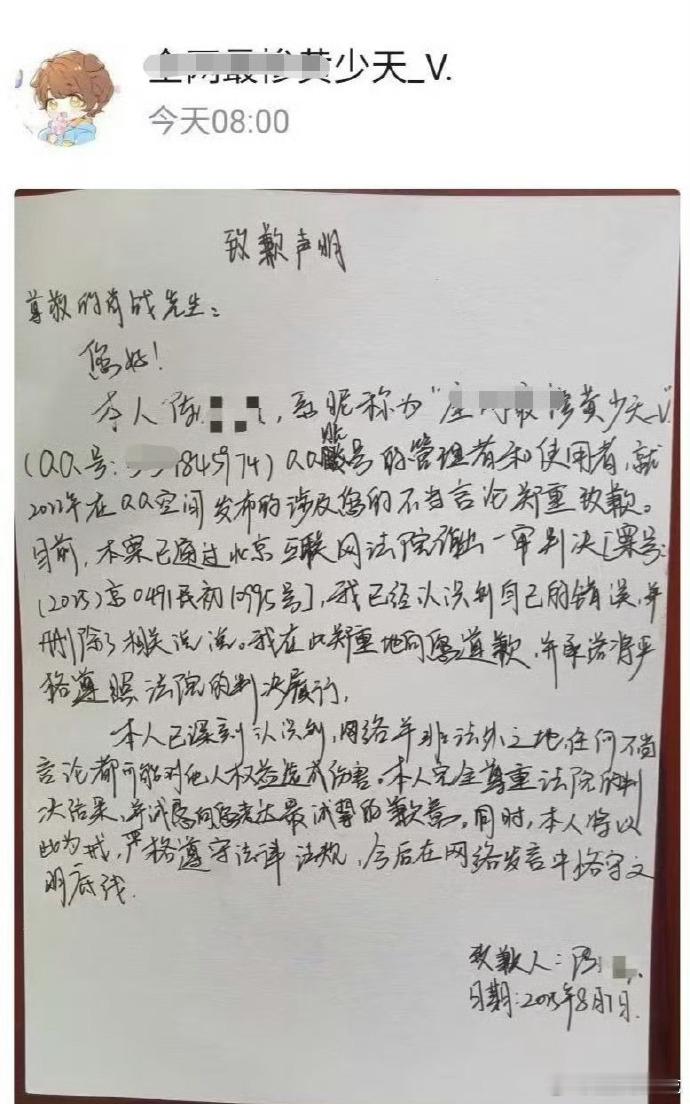 全网最惨黄少天_V.
今天08:00
致歉声明
尊敬的肖战先生：
您好！
本人陈，系昵称为"全网最惨黄少天_V."
(QQ号：1845974) QQ账号的管理者和使用者，就
2022年在QQ空间发布的涉及您的不当言论郑重致歉。
目前，本案已通过北京互联网法院作出一审判决[案号：
(2023)京0491民初10995号]，我已经认识到自己的错误，并
删除了相关说说。我在此郑重地向您道歉，并承诺将严
格遵照法院的判决履行。
本人已深刻认识到，网络并非法外之地，任何不当
言论都可能对他人权益造成伤害。本人完全尊重法院的判
决结果，并诚向您表达最诚挚的歉意。同时，本人将以
此为戒，严格遵守法律法规，今后在网络发言中恪守文
明底线。
致歉人：陈
日期：2025年8月1日.